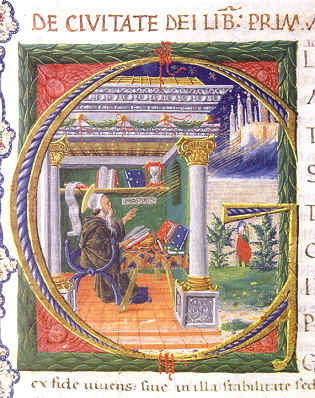 DE CIVITATE DEI LIB̄: PRIM.
L
A
T
S
T
I
P
ex fide uiuens: siue in illa stabilitate sed